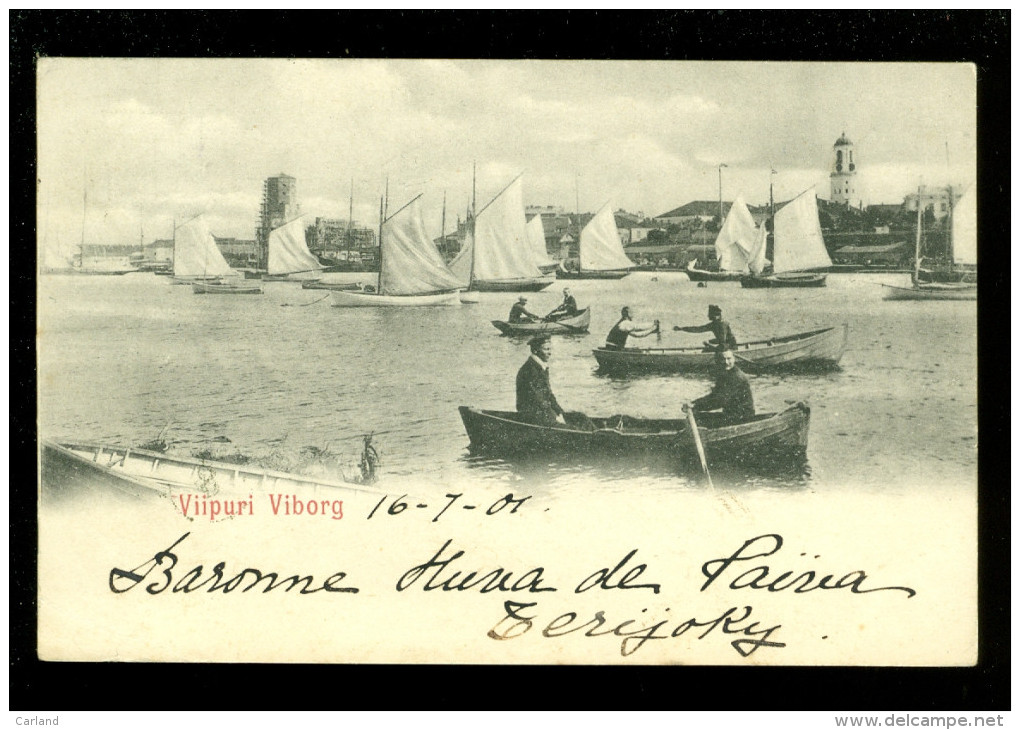 Viipuri Viborg 16-7-01.
Baronne Huna de Païva
Terijoky.
Carland
www.delcampe.net